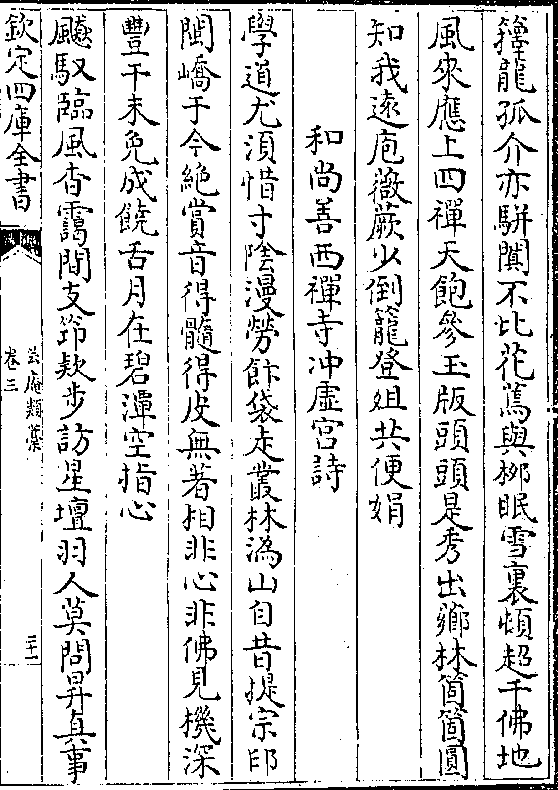 籜龍孤介亦駢闐不比花蔫與栁眠雪裏頓超千佛地
風來應上四禪天飽參玉版頭頭是秀出薌林箇箇圓
知我遠庖薇蕨少倒籠登俎共便娟
和尚善西禪寺冲虛宫詩
學道尤須惜寸陰漫勞餅袋走叢林溈山自昔提宗印
閩嶠于今絶賞音得髓得皮無著相非心非佛見機深
豐干未免成饒舌月在碧潭空指心
飈馭臨風杳靄間支筇欵步訪星壇羽人莫問昇真事
欽定四庫全書
芸庵類藁
卷三
三十一